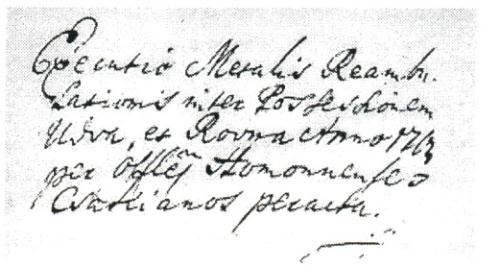 Executio Metalis Reambu-
lationis inter Possessionem
Udva, et Rovna Anno 1763
per Homonnenses
peracta.